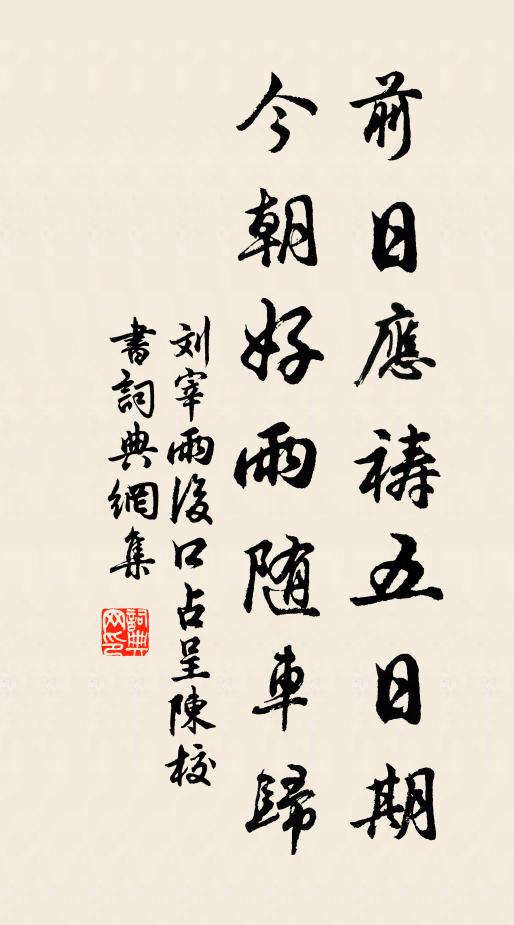 前日應祷五日期
今朝好雨随車歸
刘宰雨後口占呈陳校
書詞典網集
詞典
网印